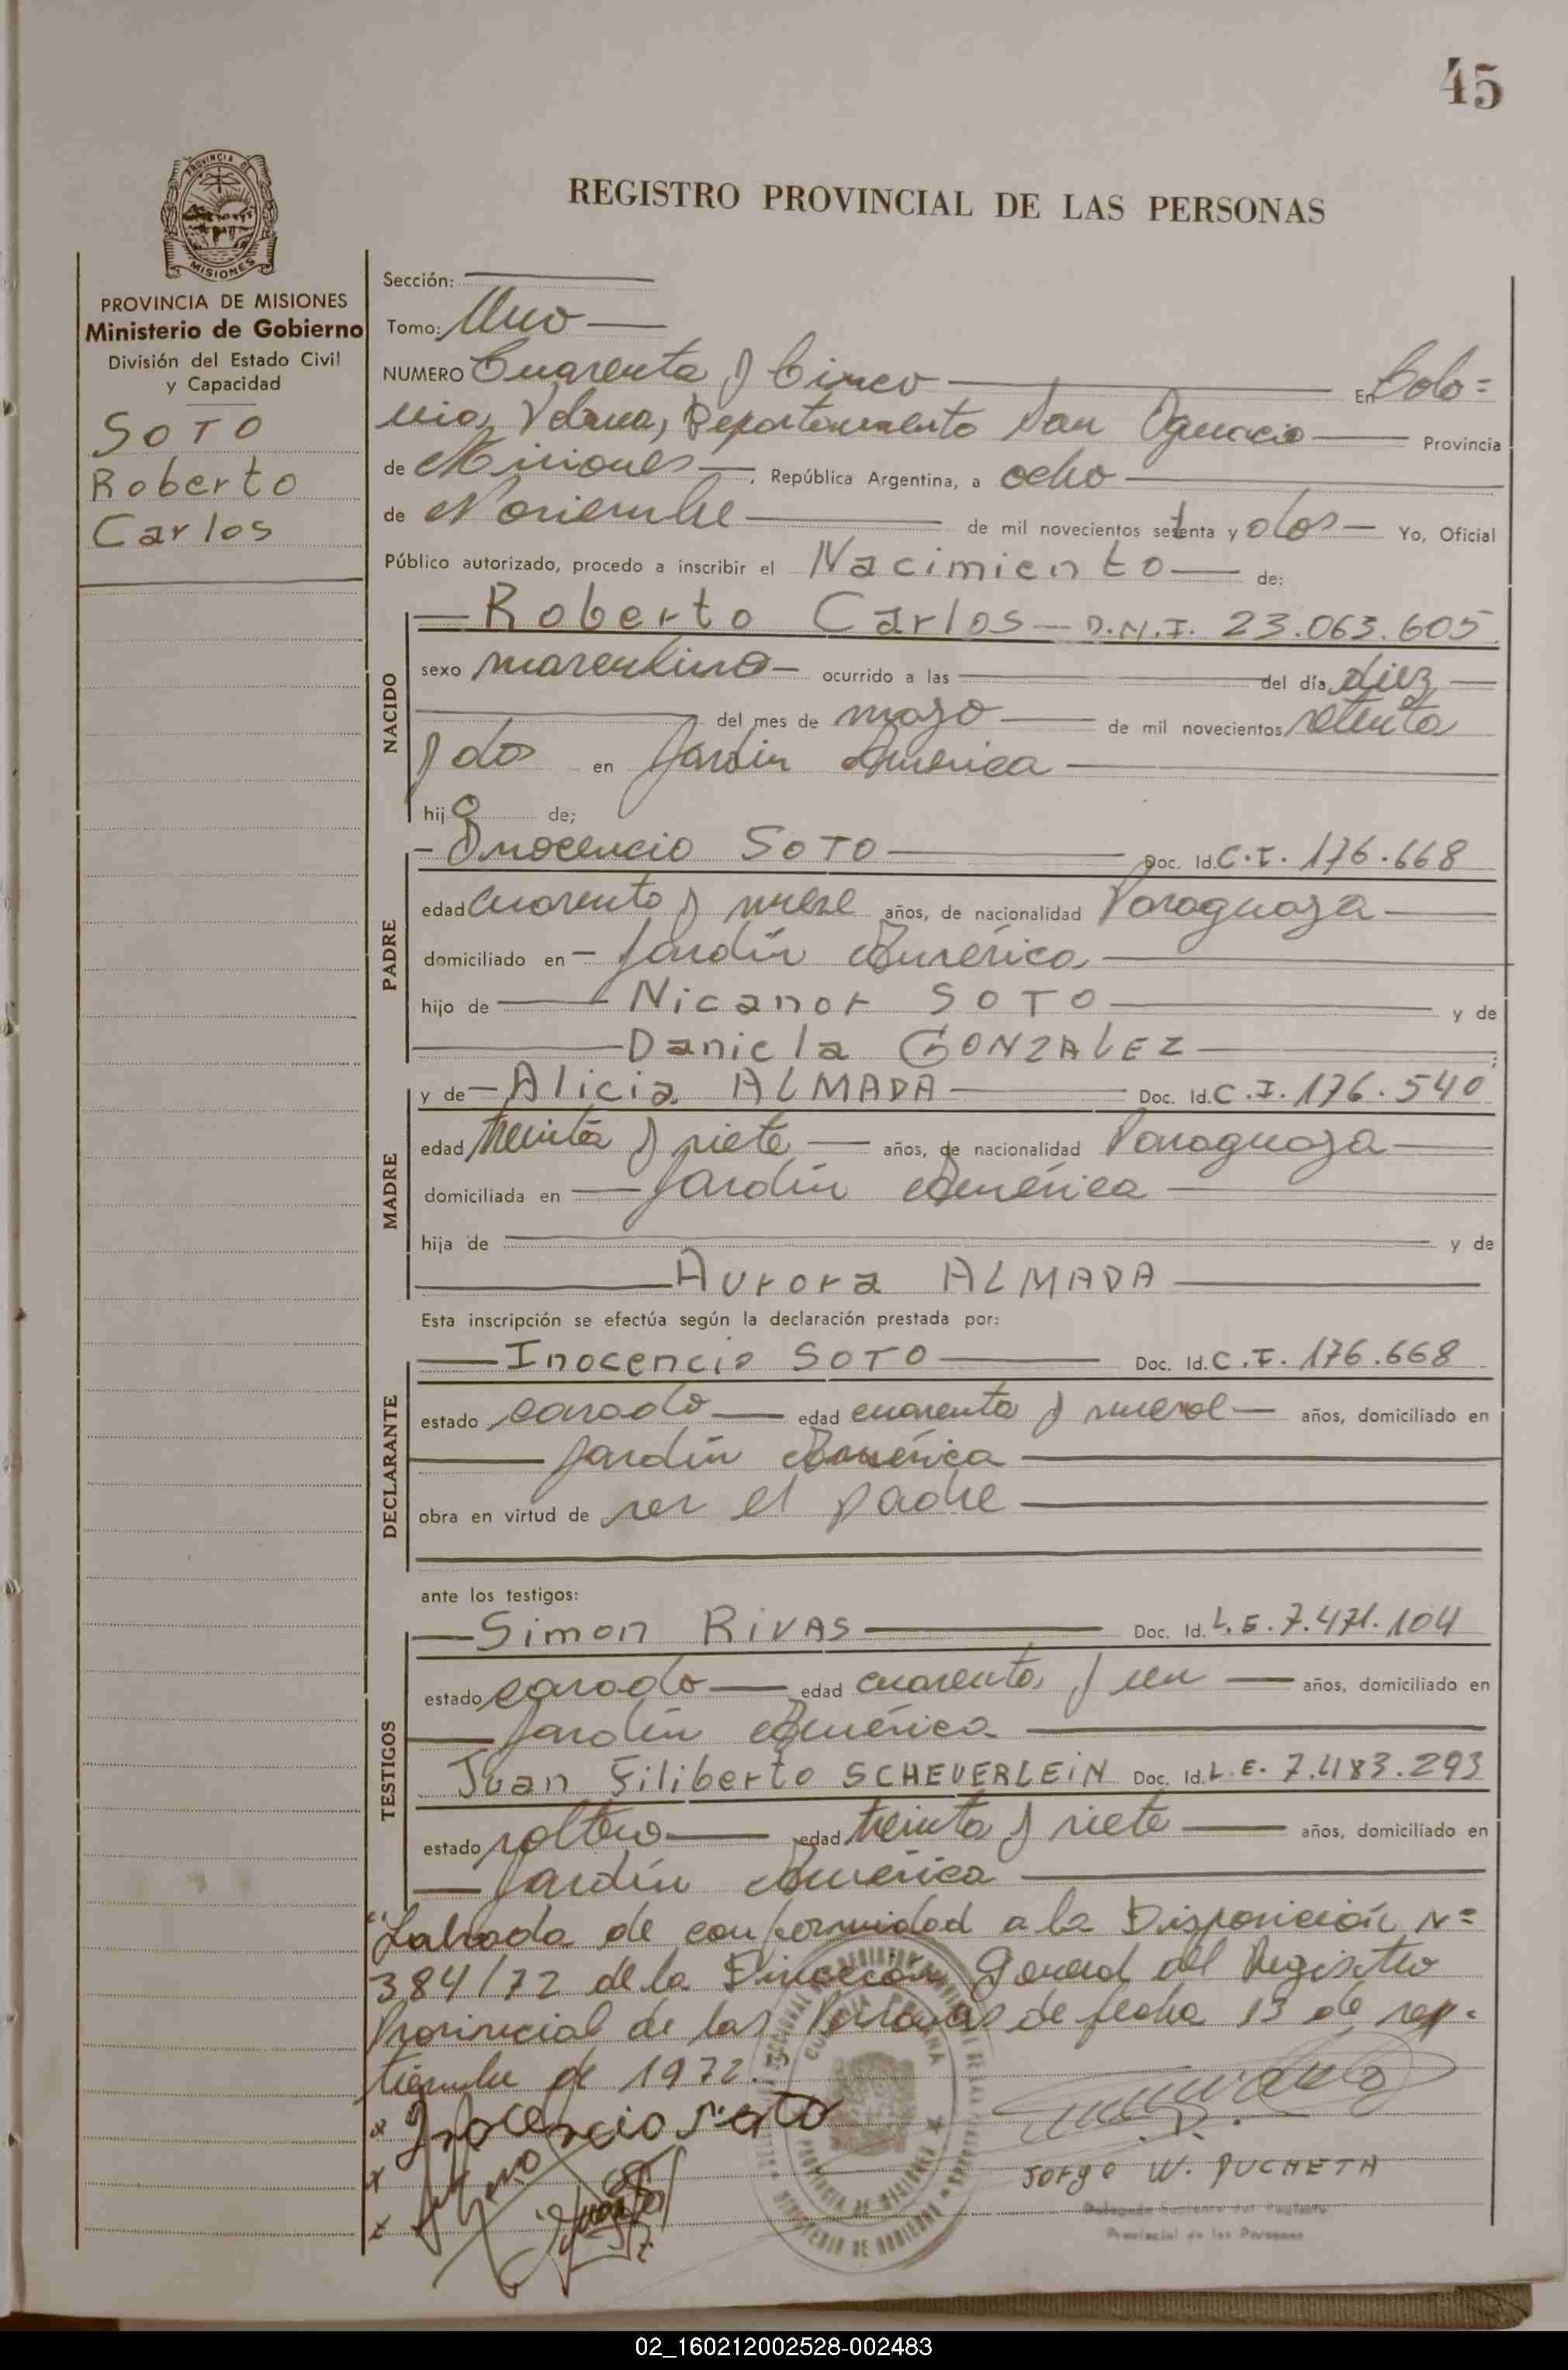 45
REGISTRO PROVINCIAL DE LAS PERSONAS
PROVINCIA DE MISIONES
PROVINCIA DE MISIONES
Ministerio de Gobierno
División del Estado Civil
y Capacidad
SOTO
Roberto
Carlos
Sección:
Tomo: Uno
NUMERO Cuarenta y Cinco En Colo=
nia Polana, Departamento San Ignacio Provincia
de Misiones, República Argentina, a ocho
de Noviembre de mil novecientos setenta y dos Yo, Oficial
Público autorizado, procedo a inscribir el Nacimiento de:
NACIDO
Roberto Carlos - D.N.I. 23.063.605
sexo masculino ocurrido a las del día diez
del mes de mayo de mil novecientos setenta
y dos en Jardin America
hijo de;
PADRE
Inocencio SOTO Doc. Id. C.I. 176.668
edad cuarenta y nueve años, de nacionalidad Paraguaya
domiciliado en Jardín América
hijo de Nicanor SOTO y de
Daniela GONZALEZ ;
MADRE
y de Alicia ALMADA Doc. Id. C.I. 176.540
edad treinta y siete años, de nacionalidad Paraguaya
domiciliada en Jardín América
hija de y de
Aurora ALMADA
Esta inscripción se efectúa según la declaración prestada por:
DECLARANTE
Inocencio SOTO Doc. Id. C.I. 176.668
estado casado edad cuarenta y nueve años, domiciliado en
Jardín América
obra en virtud de ser el padre
ante los testigos:
TESTIGOS
Simon RIVAS Doc. Id. L.E. 7.471.104
estado casado edad cuarenta y un años, domiciliado en
Jardín América
Juan Filiberto SCHEUERLEIN Doc. Id. L.E. 7.483.293
estado soltero edad treinta y siete años, domiciliado en
Jardín América
"Labrada de conformidad a la Disposición Nº
384/72 de la Dirección General del Registro
Provincial de las Personas de fecha 13 de sep-
tiembre de 1972.
x Inocencio Soto
x
x
Jorge W. PUCHETA
Delegado Suplente del Registro
Provincial de las Personas
PROVINCIA DE MISIONES
MINISTERIO DE GOBIERNO
02_160212002528-002483